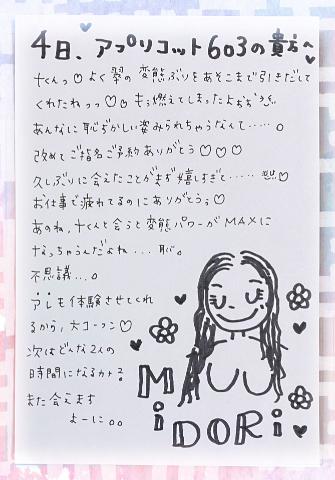 4日、アプリコット603の貴方へ
Tくんっ♡よく翠の変態ぶりをあそこまで引きだして
くれたねっっ♡♡もう燃えてしまったよぉぉ
あんなに恥ずかしい姿みられちゃうなんて……。
改めてご指名ご予約ありがとう♡♡♡
久しぶりに会えたことがまず嬉しすぎて……♡
お仕事で疲れてるのにありがとう;♡
あのね、Tくんと会うと変態パワーがMAXに
なっちゃうんだよね...恥。
不思議...。
アレも体験させてくれ
るから、大コーフン♡
次はどんな2人の
時間になるカナ?
また会えます
よーに。。
MiDORi